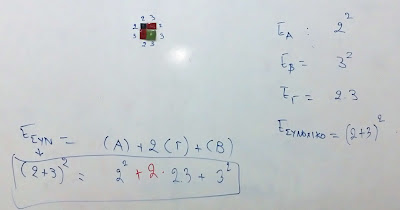 2 3
2 2
3 3
2 3
E_A : 2²
E_B = 3²
E_Γ = 2·3
E_ΣΥΝΟΛΙΚΟ = (2+3)²
E_ΣΥΝ = (A) + 2(Γ) + (B)
(2+3)² = 2² + 2 · 23 + 3²